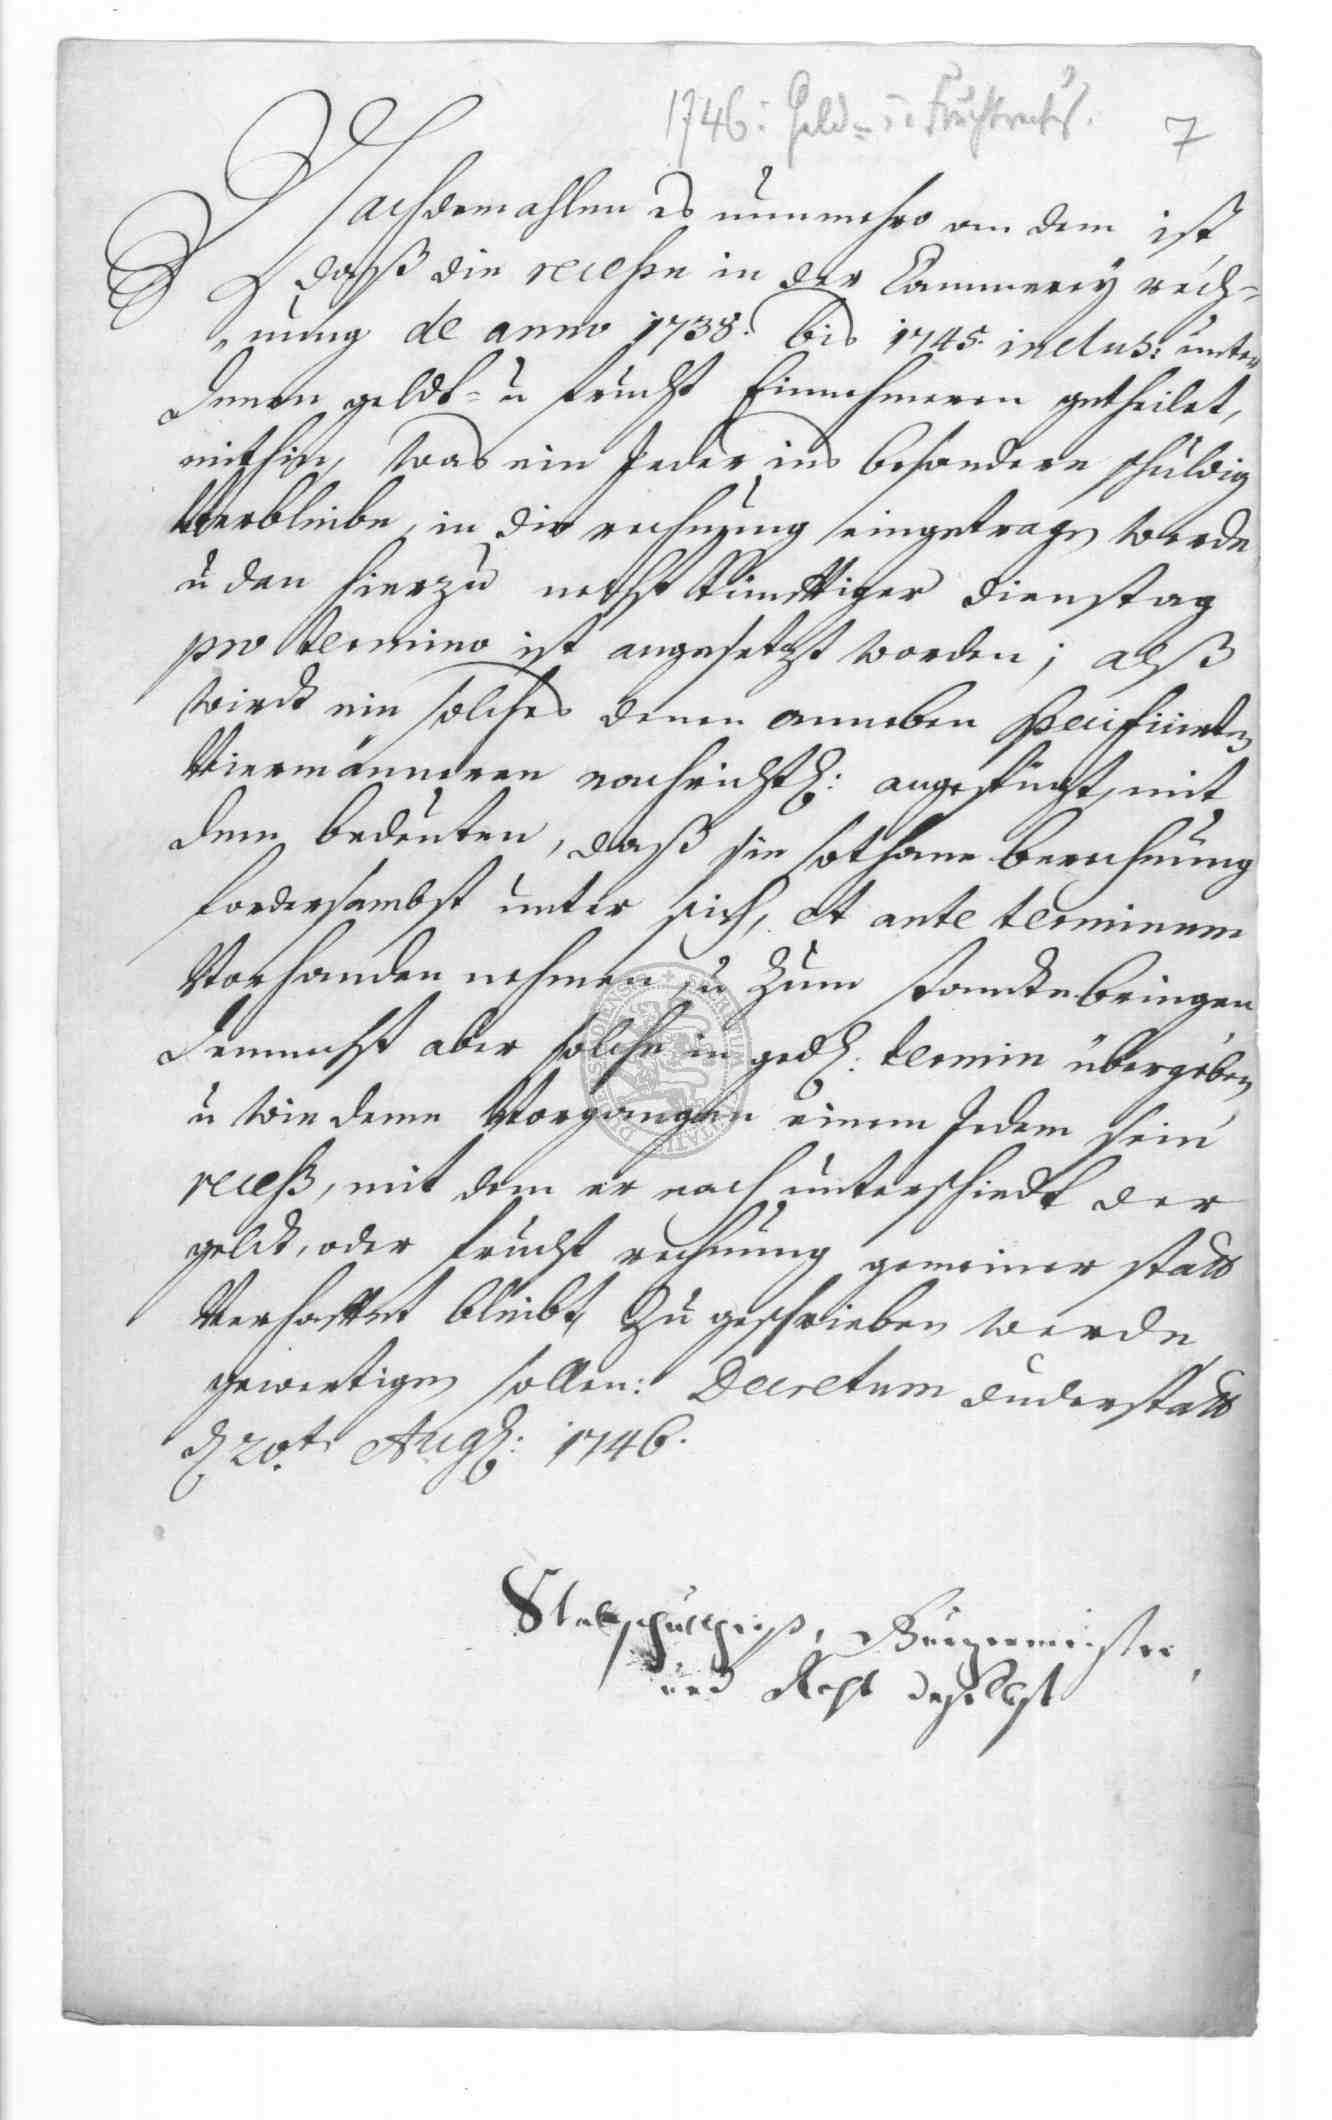 1746: Geld- u Fruchtrechn.
7
Nachdemahlen es nunmehro an dem ist,
daß die recesse in der Cammerey rech-
"nung de anno 1738. bis 1745. inclus: unter
denen geldt- u frucht Einnehmeren getheilet,
mithin, was ein Jeder ins besondere schuldig
Verbleibe, in die rechnung eingetragen werde
u dan hierzu nechst künfftiger dienstag
pro termino ist angesetzt worden; alß
wirdt ein solches denen anneben specificirten
Viermänneren nachrichtl: angefügt, mit
dem bedeuten, daß sie sothane berechnung
fordersambst unter sich, et ante terminum
Vorhanden nehmen, u zum stande bringen
demnechst aber solche in gedl: termin übergeben
u wie deme Vorgangen einem Jedem sein
receß, mit dem er nach unterschiedt der
geldt, oder frucht rechnung gemeiner stadt
Verhafftet bleibt, zu geschrieben werde
gewertigen sollen: Decretum duderstadt
d 20.t Augl: 1746.
Stadtschultheiß, Burgermeister
und Raht daselbst
SIGILLUM CIVITATIS DUDERSTADENSIS